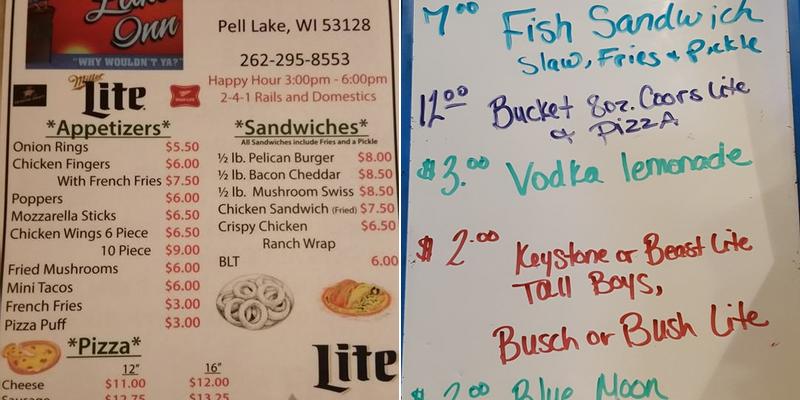 Lake
Inn
"WHY WOULDN'T YA?"
Pell Lake, WI 53128
262-295-8553
Happy Hour 3:00pm - 6:00pm
2-4-1 Rails and Domestics
Miller
Lite
*Appetizers*
Onion Rings $5.50
Chicken Fingers $6.00
With French Fries $7.50
Poppers $6.00
Mozzarella Sticks $6.50
Chicken Wings 6 Piece $6.50
10 Piece $9.00
Fried Mushrooms $6.00
Mini Tacos $6.00
French Fries $3.00
Pizza Puff $3.00
*Sandwiches*
All Sandwiches include Fries and a Pickle
½ lb. Pelican Burger $8.00
½ lb. Bacon Cheddar $8.50
½ lb. Mushroom Swiss $8.50
Chicken Sandwich (Fried) $7.50
Crispy Chicken $6.50
Ranch Wrap
BLT 6.00
*Pizza*
12" 16"
Cheese $11.00 $12.00
Sausage $12.75 $13.25
Lite
7.00 Fish Sandwich
Slaw, Fries + Pickle
12.00 Bucket 8oz. Coors Lite
& Pizza
$3.00 Vodka lemonade
$2.00 Keystone or Beast Lite
Tall Boys,
Busch or Bush Lite
$2.00 Blue Moon